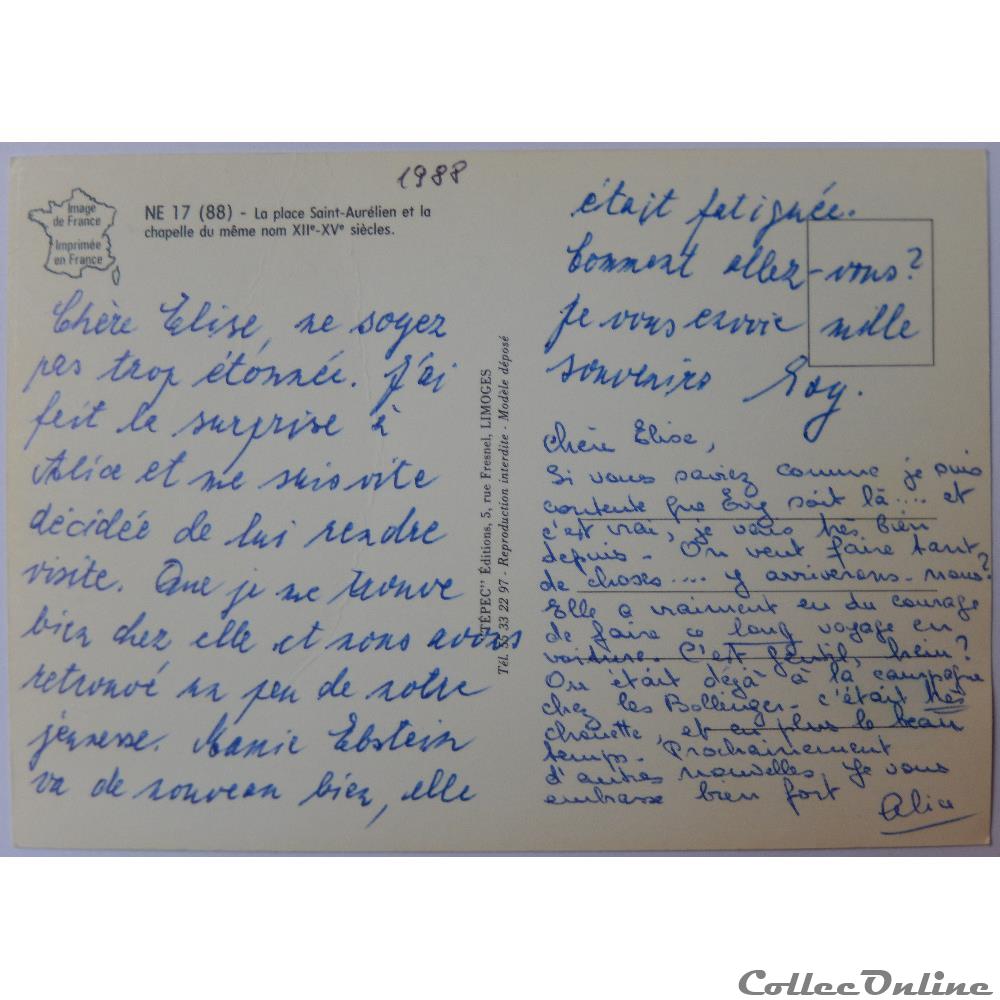 1988
Image
de France
Imprimée
en France
NE 17 (88) - La place Saint-Aurélien et la
chapelle du même nom XIIe-XVe siècles.
Chère Elise, ne soyez
pas trop étonnée. J'ai
fait la surprise à
Alice et me suis vite
décidée de lui rendre
visite. Que je me trouve
bien chez elle et nous avons
retrouvé un peu de notre
jeunesse. Mamie Ebstein
va de nouveau bien, elle
"TÉPEC" Éditions, 5, rue Fresnel, LIMOGES
Tél. 55 33 22 97 - Reproduction interdite - Modèle déposé
était fatiguée.
Comment allez-vous?
Je vous envoie mille
souvenirs
Chère Elise,
Si vous saviez comme je suis
contente que Eug soit là.... et
c'est vrai, je vais très bien
depuis. On veut faire tant
de choses.... y arriverons-nous?
Elle a vraiment eu du courage
de faire ce long voyage en
voiture. C'est gentil, hein?
On était déjà à la campagne
chez les Bollinger. c'était très
chouette, et en plus le beau
temps. Prochainement
d'autres nouvelles, Je vous
embrasse bien fort
Alice
CollecOnline